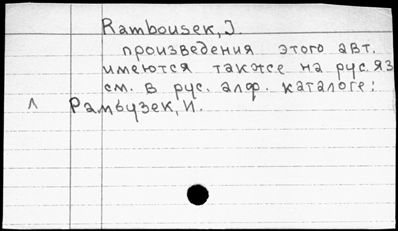 Rambousek, J.
произведения этого авт.
имеются также на рус. яз
см. в рус. алф. каталоге:
^ Рамбузек, И.